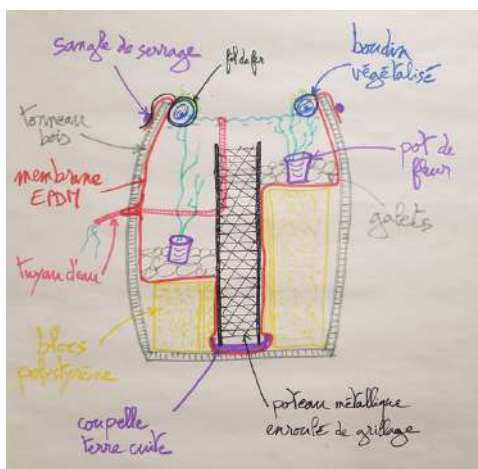 sangle de serrage
fil de fer
boudin
végétalisé
tonneau
bois
membrane
EPDM
pot de
fleur
galets
tuyau d'eau
blocs
polystyrène
coupelle
terre cuite
poteau métallique
enroulé de grillage